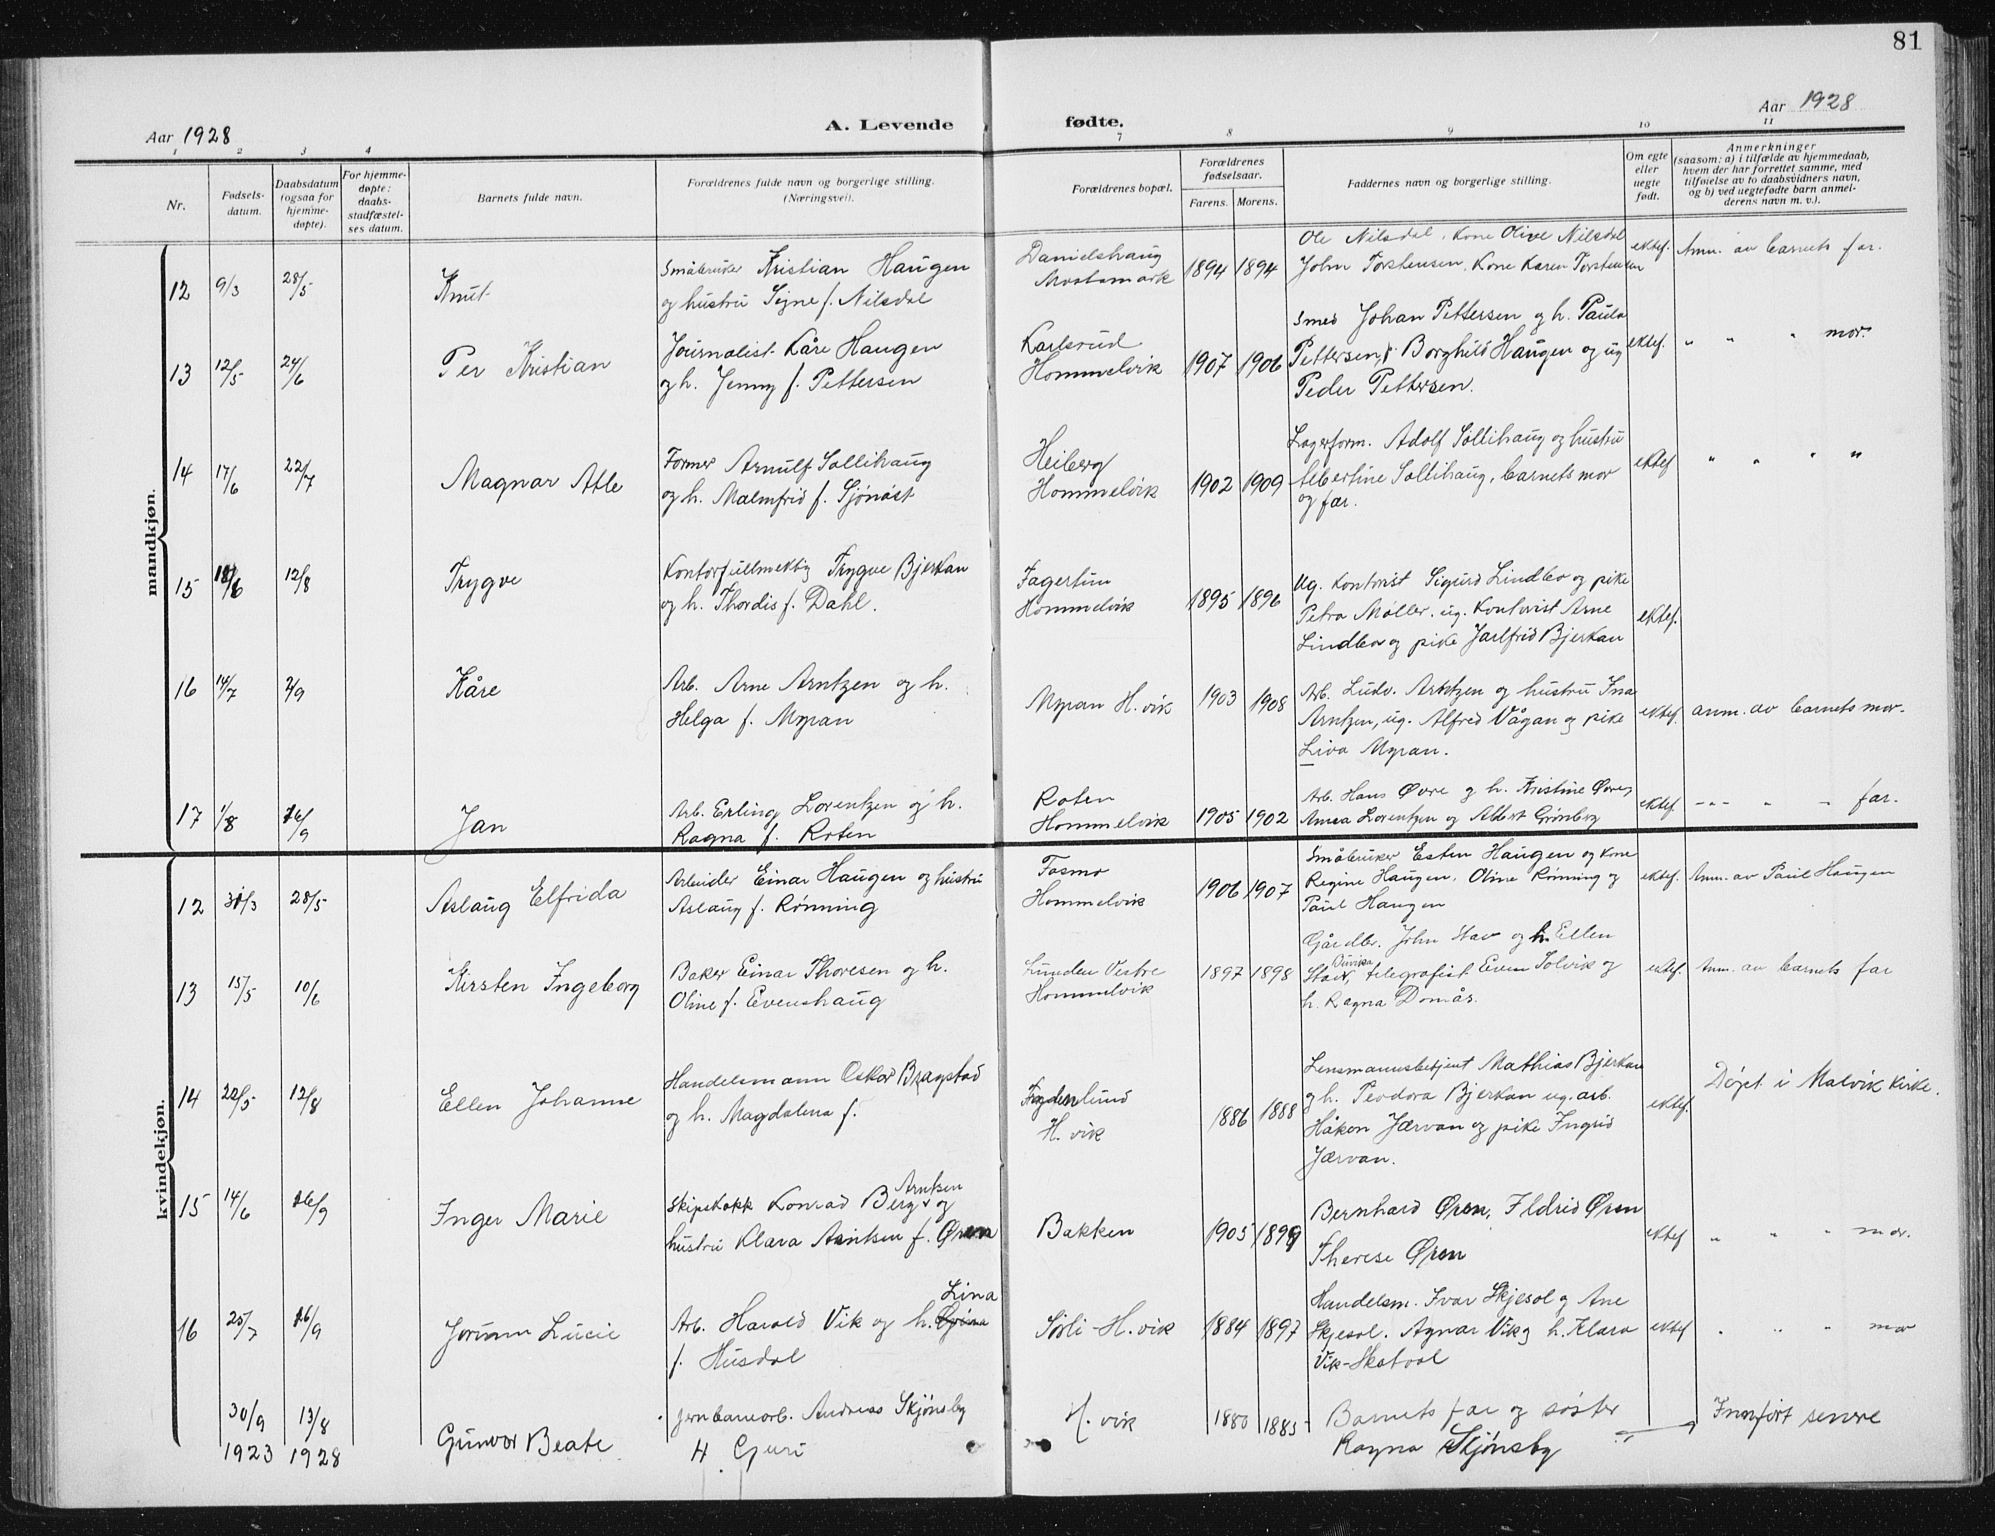 81
Aar 1928
A. Levende fødte.
Aar 1928
1 2 3 4 7 8 9 10 11
Nr.
Fødsels-
datum.
Daabsdatum
(ogsaa for
hjemme-
døpte).
For hjemme-
døpte:
daabs-
stadfæstel-
ses datum.
Barnets fulde navn.
Forældrenes fulde navn og borgerlige stilling.
(Næringsvei).
Forældrenes bopæl.
Forældrenes
fødselsaar.
Farens. Morens.
Faddernes navn og borgerlige stilling.
Om egte
eller
uegte
født.
Anmerkninger
(saasom: a) i tilfælde av hjemmedaab,
hvem der har forrettet samme, med
tilføielse av to daabsvidners navn,
og b) ved uegtefødte barn anmel-
derens navn m. v.).
mandkjøn.
12 9/3 28/5 Knut
Småbruker Kristian Haugen
og hustru Signe f. Nilsdal
Danielshaug
Mostamark
1894 1894
Ole Nilsdal, kone Olive Nilsdal
John Torstensen, Kone Karen Torstensen
ektef. Anm. av barnets far.
13 12/5 24/6 Per Kristian
Journalist Kåre Haugen
og h. Jenny f. Pettersen
Karlsrud
Hommelvik
1907 1906
Smed Johan Pettersen og h. Paula
Pettersen, f. Borghild Haugen og ug
Peder Pettersen.
ektef. " " " mor.
14 17/6 22/7 Magnar Atle
Former Arnulf Sollihaug
og h. Malmfrid f. Sjønøst
Heiberg
Hommelvik
1902 1909
Lagerform. Adolf Sollihaug og hustru
Albertine Sollihaug, barnets mor
og far.
ektef " " " "
15 18/6 12/8 Trygve
Kontorfullmektig Trygve Bjerkan
og h. Thordis f. Dahl.
Fagertun
Hommelvik
1895 1896
Ug. Kontorist Sigurd Lindbo og pike
Petra Møller. ug. Kontorist Arne
Lindbo og pike Jarlfrid Bjerkan
ektef.
16 14/7 2/9 Kåre
Arb. Arne Arntzen og h.
Helga f. Myran
Myran H. vik
1903 1908
Arb. Ludv. Arntzen og hustru Ina
Arntzen, ug. Alfred Vågan og pike
Liva Myran.
ektef. anm. av barnets mor.
17 1/8 16/9 Jan
Arb. Erling Lorentzen og h.
Ragna f. Roten
Roten
Hommelvik
1905 1902
Arb. Hans Øvre og h. Kristine Øvre,
Anna Lorentzen og Albert Grønberg
ektef. -"- " " far.
kvindekjøn.
12 31/3 28/5 Aslaug Elfrida
Arbeider Einar Haugen og hustru
Aslaug f. Rønning
Tosmo
Hommelvik
1906 1907
Småbruker Esten Haugen og kone
Regine Haugen, Oline Rønning og
Paul Haugen
ektef. Anm. av Paul Haugen
13 15/5 10/6 Kirsten Ingeborg
Baker Einar Thoresen og h.
Oline f. Evenshaug
Lunden Vestre
Hommelvik
1897 1898
Gårdbr. John Stav og h. Ellen
Stav, telegrafist Even Solvik og
h. Ragna Domås.
ektef. Anm. av barnets far
14 22/5 12/8 Ellen Johanne
Handelsmann Oskar Bragstad
og h. Magdalena f.
Frydenlund
H. vik
1886 1888
Lensmannsbetjent Mathias Bjerkan
og h. Peodora Bjerkan ug. arb.
Håkon Jærvan og pike Ingrid
Jærvan.
ektef. Døpt i Malvik kirke.
15 14/6 16/9 Inger Marie
Arntsen
Skipskokk Konrad Berg og
hustru Klara Arntsen f. Øren
Bakken
1905 1899
Bernhard Øren, Eldrid Øren
Therese Øren
ektef " " " mor.
16 25/7 16/9 Jorunn Lucie
Lina
Arb. Harald Vik og h.
f. Husdal
Sørli - H. vik
1884 1897
Handelsm. Ivar Skjesol og Ane
Skjesol. Agnar Vik og h. Klara
Vik-Skatval
ektef " " " mor
30/9
1923
13/8
1928
Gunvor Beate
Jernbanearb. Andreas Skjønsby
H Guri
H. vik
1880 1885
Barnets far og søster
Ragna Skjønsby
Innført senere